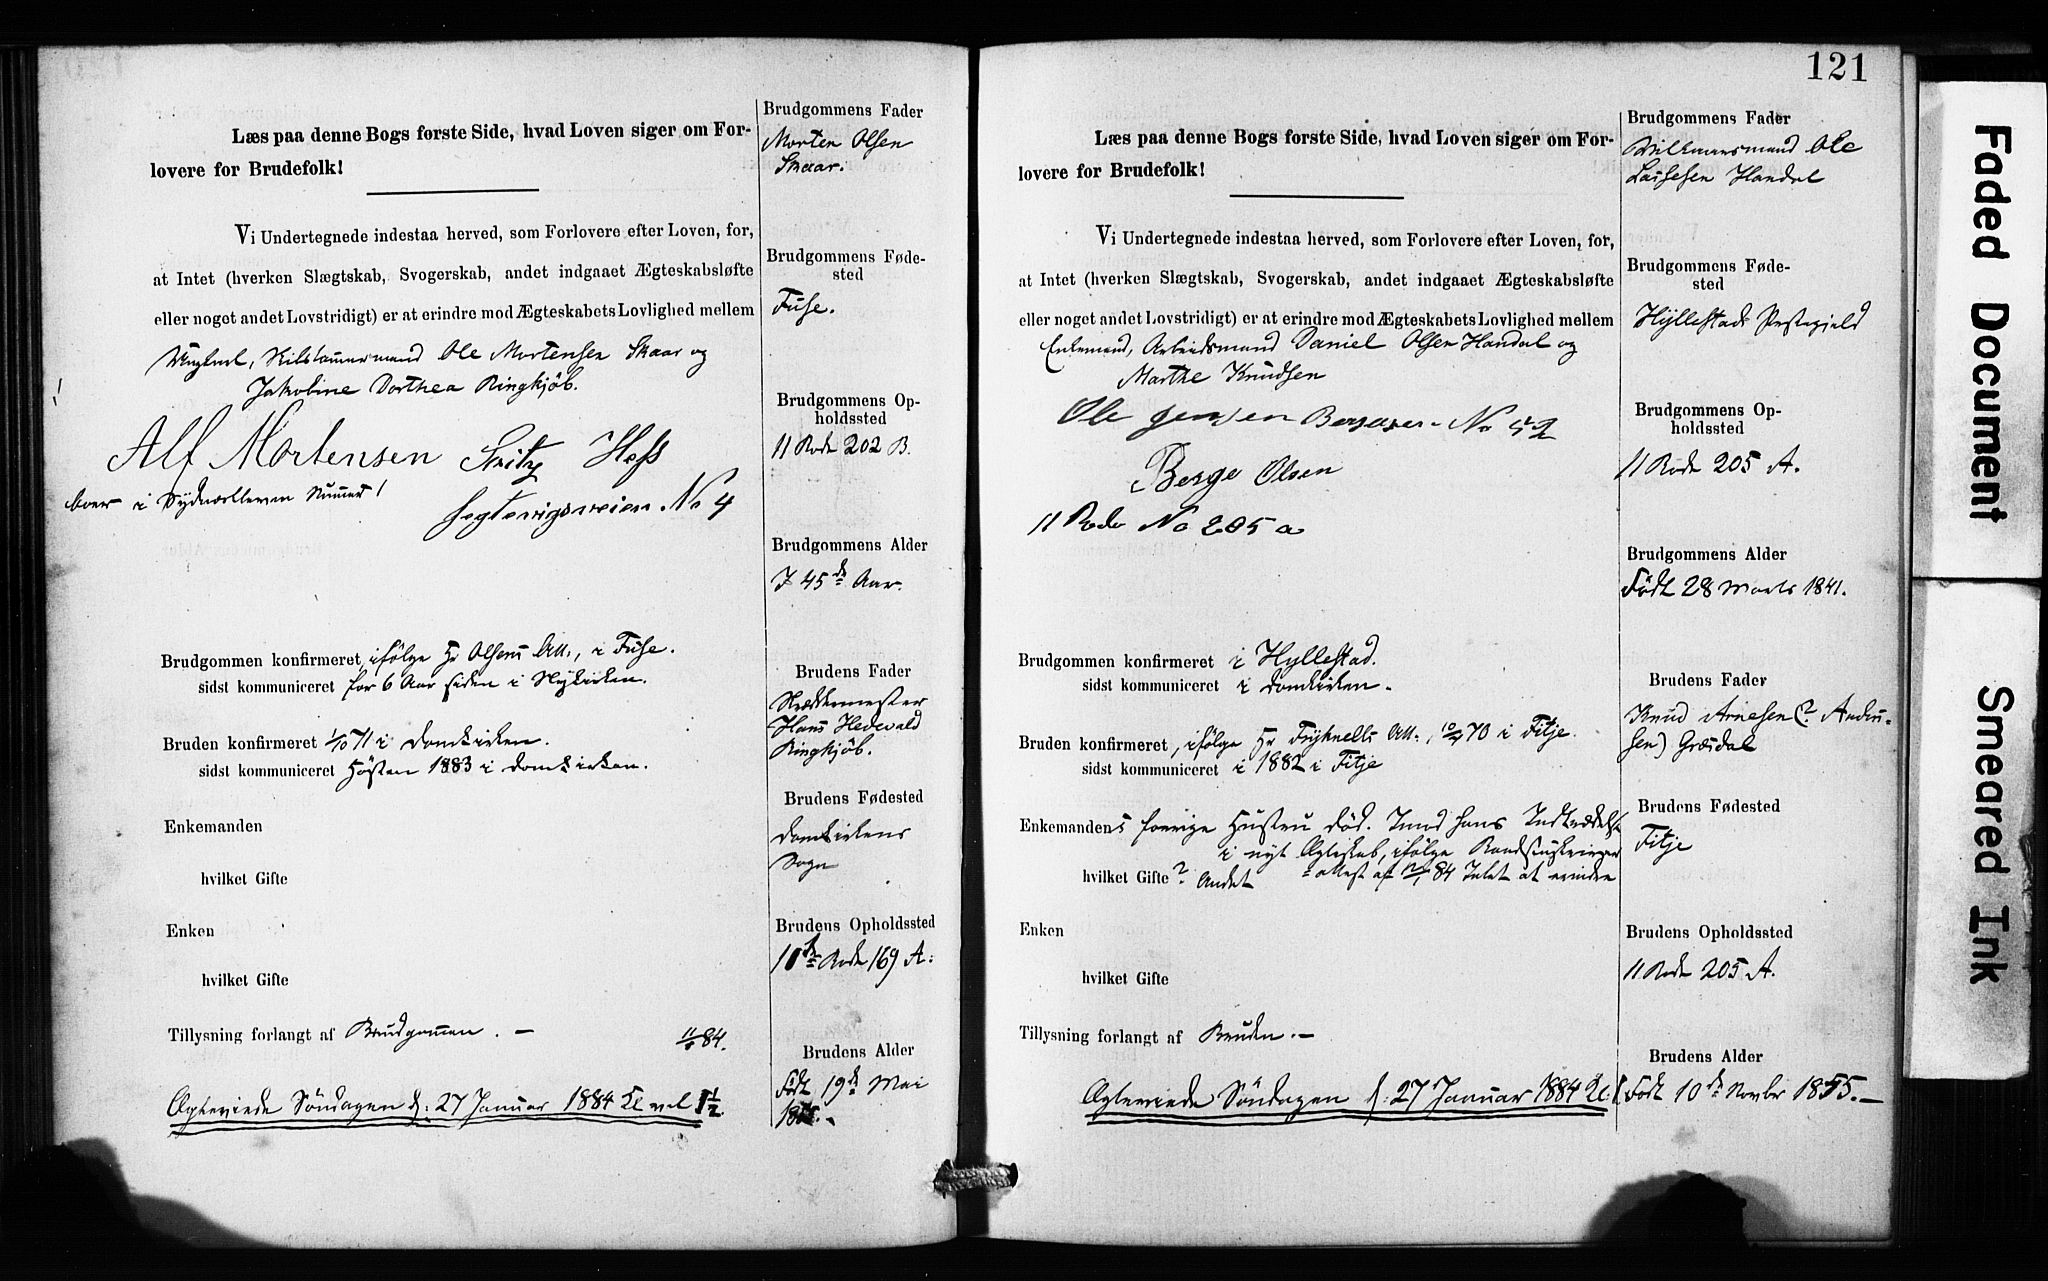 Læs paa denne Bogs første Side, hvad Loven siger om For-
lovere for Brudefolk!
Vi Undertegnede indestaa herved, som Forlovere efter Loven, for,
at Intet (hverken Slægtskab, Svogerskab, andet indgaaet Ægteskabsløfte
eller noget andet Lovstridigt) er at erindre mod Ægteskabets Lovlighed mellem
Ungkarl, Ole Mortensen Skaar og
Jakobine Dorthea Ringkjöb.
Alf Mortensen Fritz Hess
boer i Nummer 1
No 4
Brudgommen konfirmeret, ifölge Hr Olsens Att:, i Fuse.
sidst kommuniceret for 6 Aar siden i Nykirken.
Bruden konfirmeret 1/10 71 i Domkirken.
sidst kommuniceret Hösten 1883 i Domkirken.
Enkemanden
hvilket Gifte
Enken
hvilket Gifte
Tillysning forlangt af Brudgommen. — 11/1 84.
Ægteviede Söndagen d: 27 Januar 1884 Kl
Brudgommens Fader
Morten Olsen
Skaar.
Brudgommens Føde-
sted
Fuse.
Brudgommens Op-
holdssted
11 Rode 202 B.
Brudgommens Alder
I 45de Aar.
Brudens Fader
Skræddermester
Hans Hedevald
Ringkjöb.
Brudens Fødested
Domkirkens
Sogn
Brudens Opholdssted
10de Rode 169 A:
Brudens Alder
Födt 19de Mai
121
Læs paa denne Bogs første Side, hvad Loven siger om For-
lovere for Brudefolk!
Vi Undertegnede indestaa herved, som Forlovere efter Loven, for,
at Intet (hverken Slægtskab, Svogerskab, andet indgaaet Ægteskabsløfte
eller noget andet Lovstridigt) er at erindre mod Ægteskabets Lovlighed mellem
Enkemand, Arbeidsmand Daniel Olsen Handal og
Marthe Knudsen
Ole Jensen No 52
Berge Olsen
11 Rode No 205 a
Brudgommen konfirmeret i Hyllestad.
sidst kommuniceret i Domkirken.
Bruden konfirmeret, ifölge Hr Att:, 70 i Fitje.
sidst kommuniceret i 1882 i Fitje
Enkemandens forrige Hustru död. Imod hans Indtrædelse
i nyt Ægteskab, ifölge
hvilket Gifte? Andet attest af 84 Intet at erindre
Enken
hvilket Gifte
Tillysning forlangt af Bruden. —
Ægteviede Söndagen d: 27 Januar 1884 Kl:
Brudgommens Fader
Ole
Handal
Brudgommens Føde-
sted
Hyllestads Prstegjeld
Brudgommens Op-
holdssted
11 Rode 205 A.
Brudgommens Alder
Födt 28 Marts 1841.
Brudens Fader
Knud Arnesen (? Andu-
sen) Græsdal
Brudens Fødested
Fitje
Brudens Opholdssted
11 Rode 205 A.
Brudens Alder
Födt 10de Novbr 1855. —
Faded Document
Smeared Ink